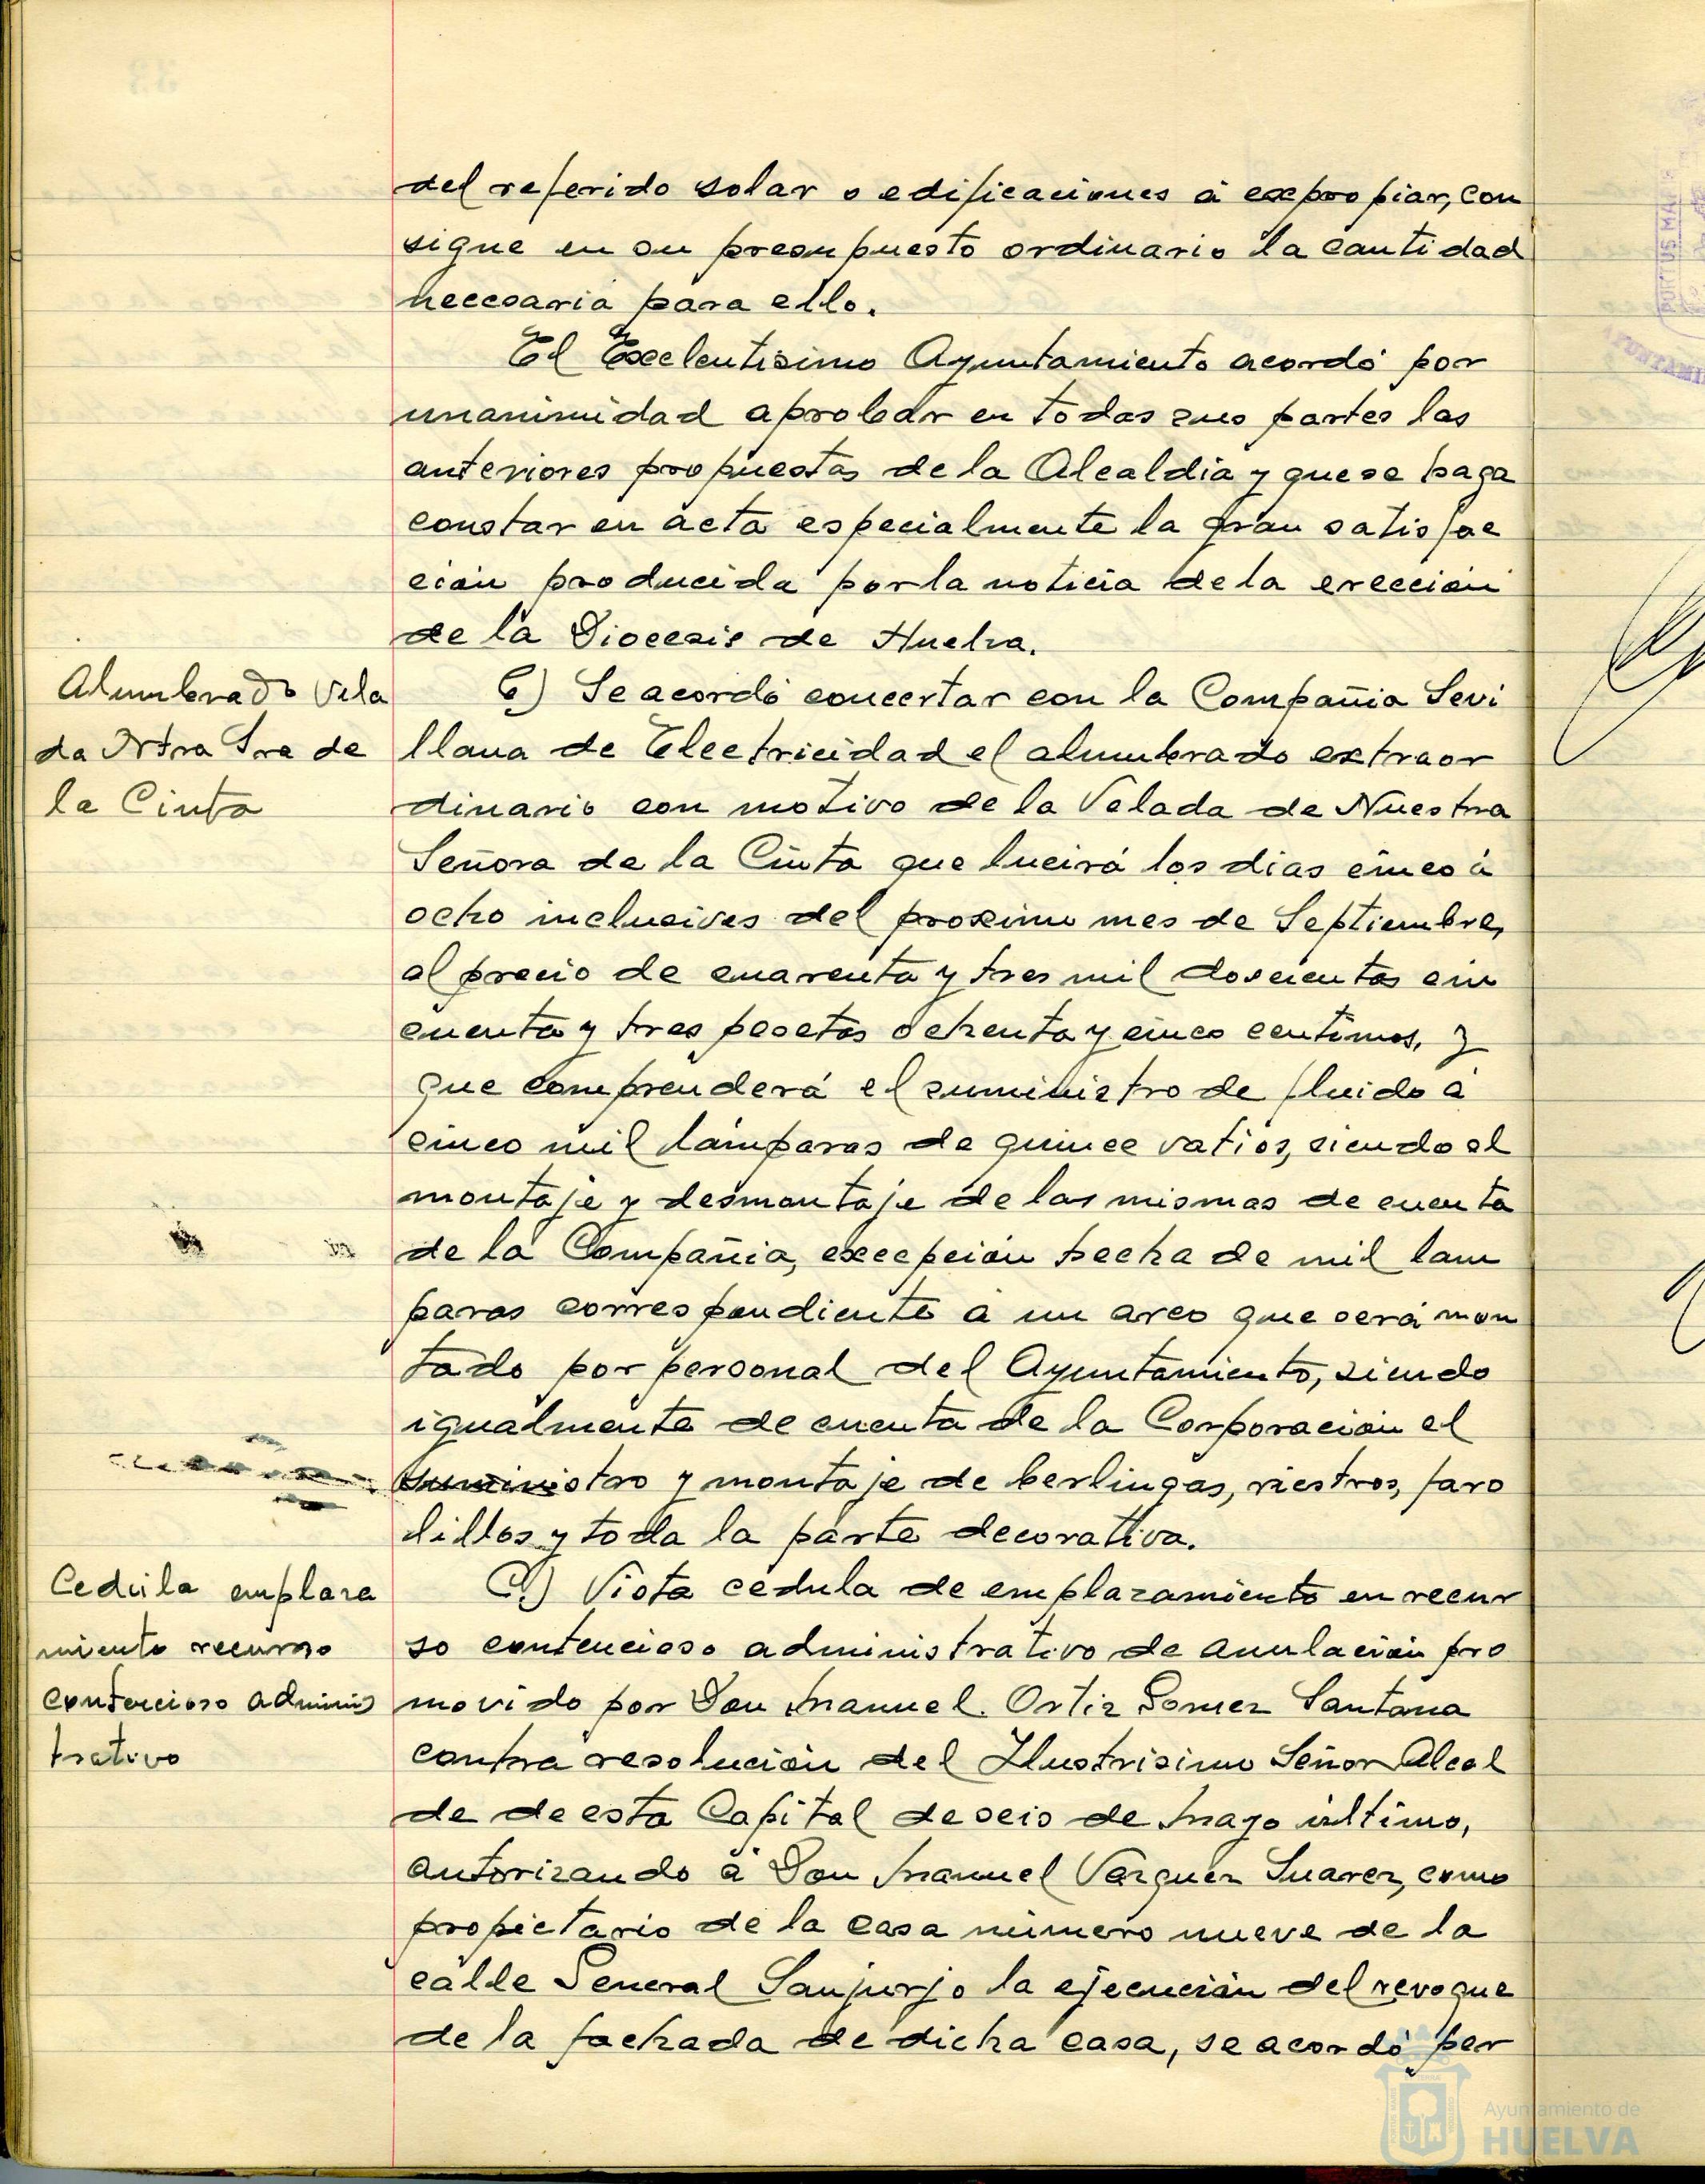 del referido solar o edificaciones á expropiar, con
signe en su presupuesto ordinario la cantidad
necesaria para ello.
El Excelentisimo Ayuntamiento acordó por
unanimidad aprobar en todas sus partes las
anteriores propuestas de la Alcaldia y que se haga
constar en acta especialmente la gran satisfac
ción producida por la noticia de la erección
de la Diocesis de Huelva.
Alumbrado Vela
da Ntra Sra de
la Cinta
6) Se acordó concertar con la Compañia Sevi
llana de Electricidad el alumbrado extraor
dinario con motivo de la Velada de Nuestra
Señora de la Cinta que lucirá los dias cinco á
ocho inclusives del proximo mes de Septiembre,
al precio de cuarenta y tres mil doscientas cin
cuenta y tres pesetas ochenta y cinco centimos, y
que comprenderá el suministro de fluido á
cinco mil lámparas de quince vatios, siendo el
montaje y desmontaje de las mismas de cuenta
de la Compañia, excepción hecha de mil lam
paras correspondiente a un arco que será mon
tado por personal del Ayuntamiento, siendo
igualmente de cuenta de la Corporación el
suministro y montaje de berlingas, riestros, faro
lillos y toda la parte decorativa.
Cedula emplaza
miento recurso
contencioso adminis
trativo
C.) Vista cédula de emplazamiento en recur
so contencioso administrativo de anulación pro
movido por Don Manuel Ortiz Gomez Santana
contra resolución del Ilustrisimo Señor Alcal
de de esta Capital de seis de Mayo último,
autorizando á Don Manuel Vazquez Suarez, como
propietario de la casa número nueve de la
calle General Sanjurjo la ejecución del revoque
de la fachada de dicha casa, se acordó per
Ayuntamiento de
HUELVA